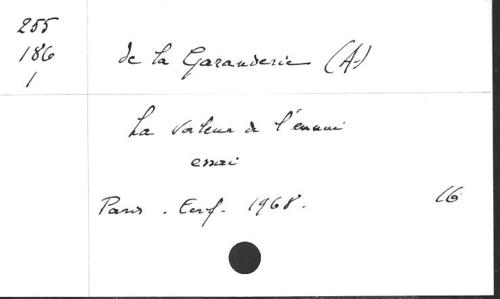 255
186
1
de la Garanderie (A.)
La valeur de l'ennui
essai
Paris. Cerf. 1968.
16